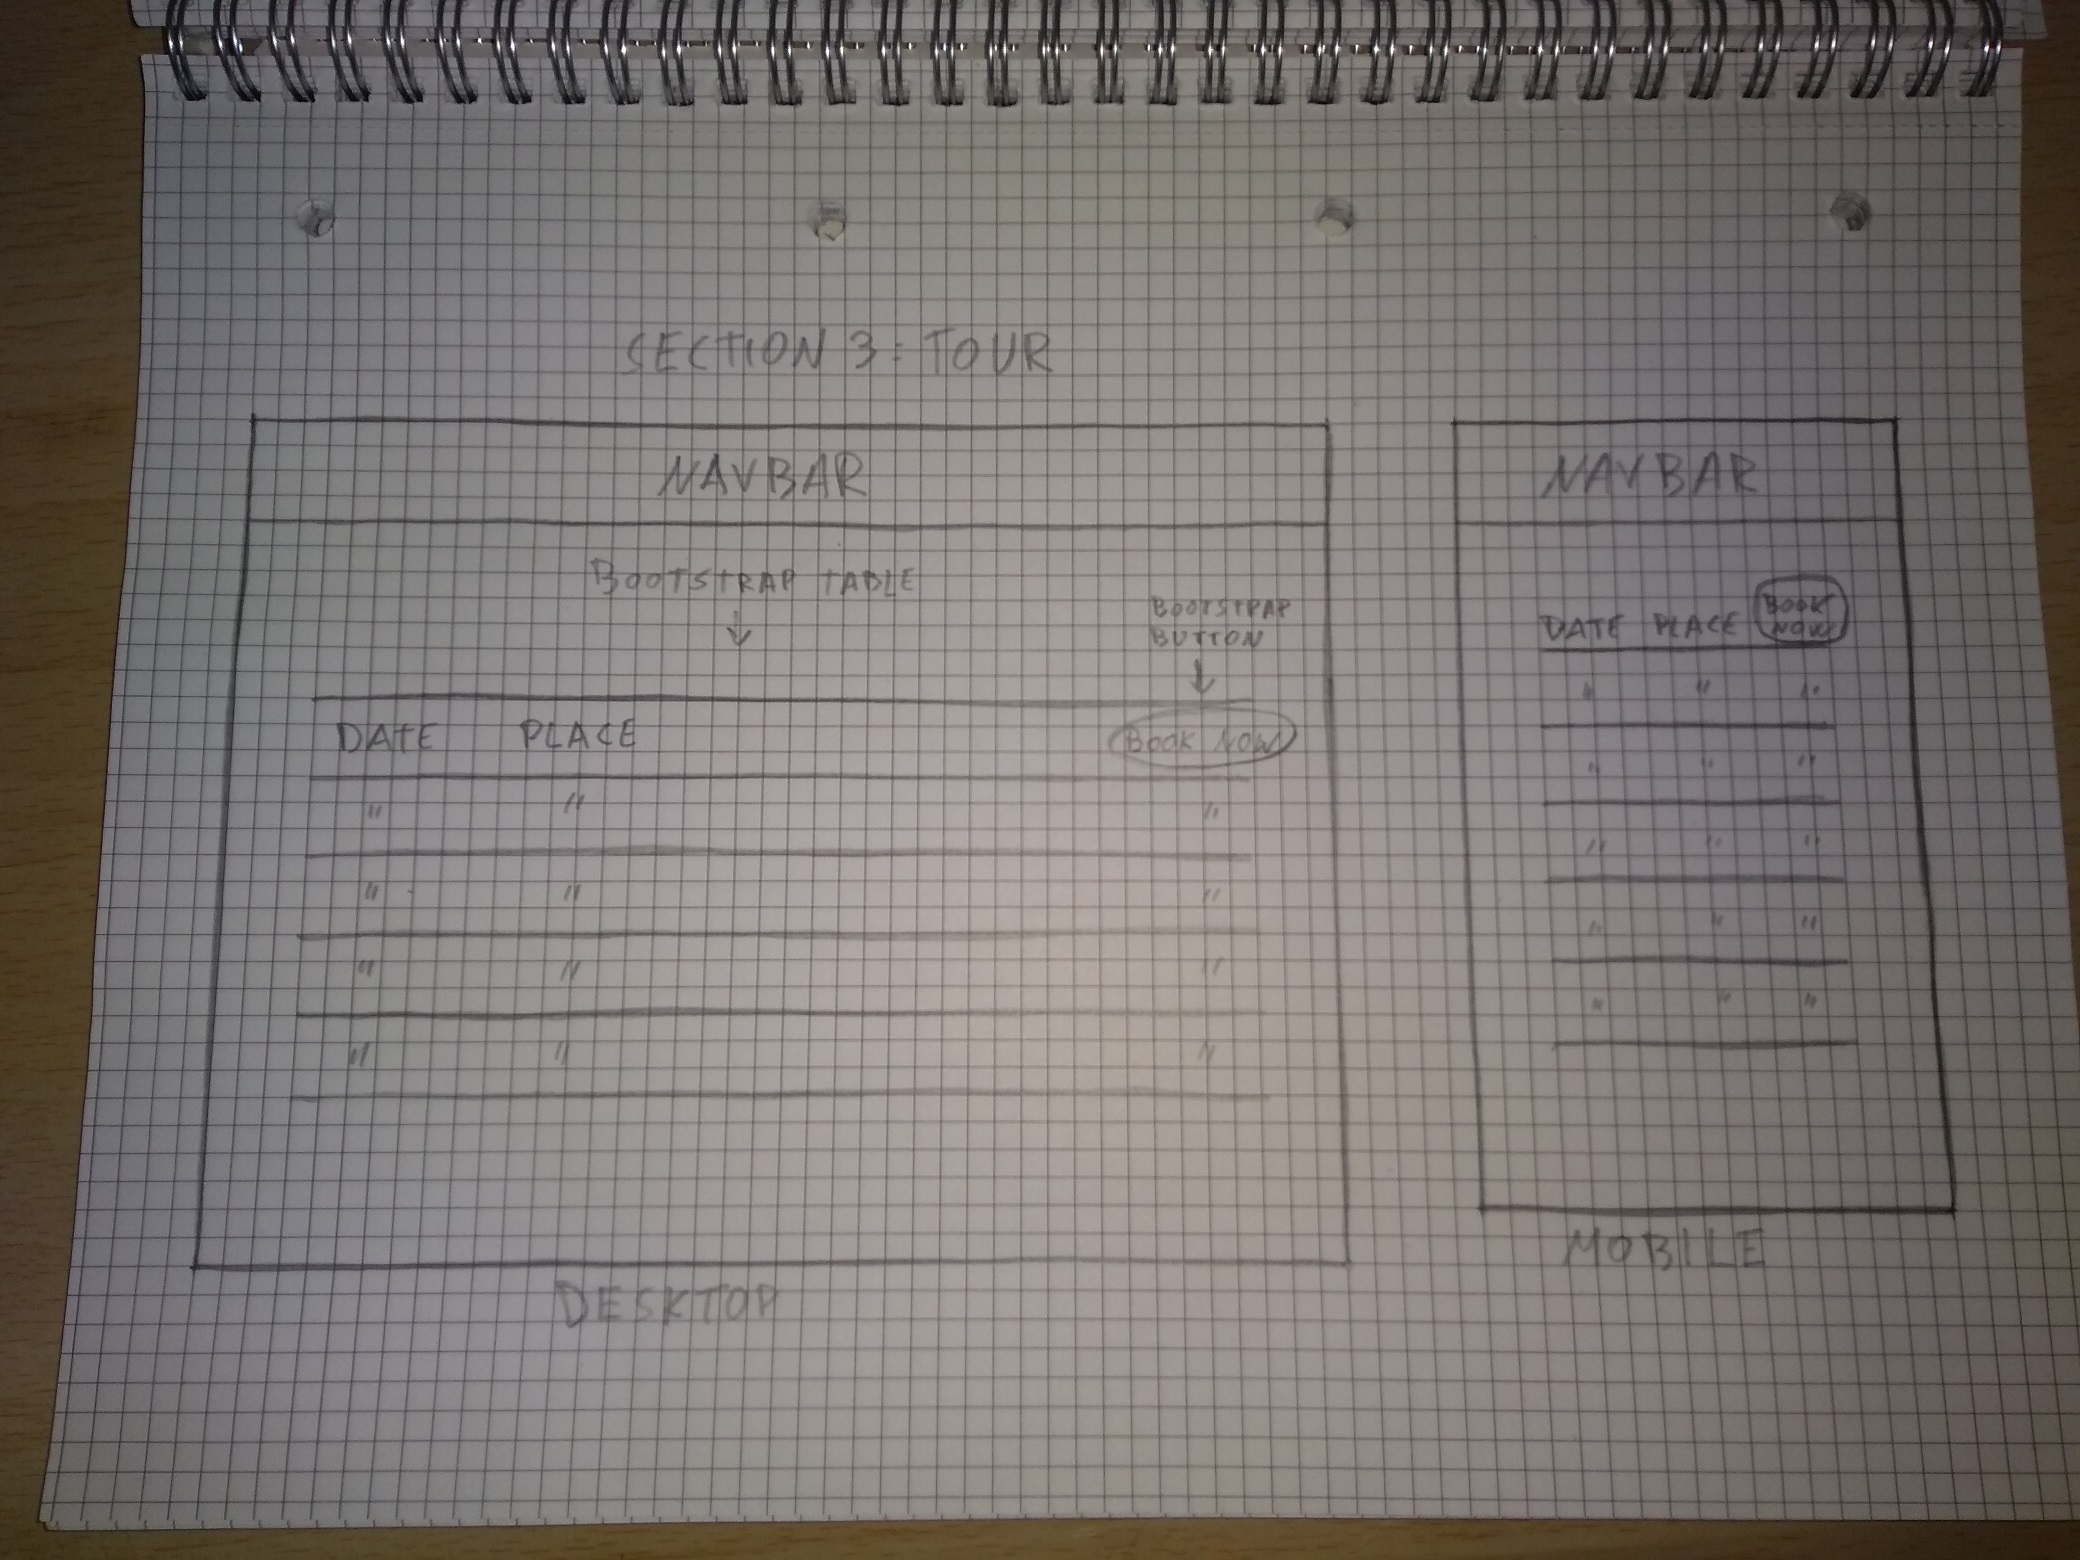 SECTION 3: TOUR
NAVBAR
BOOTSTRAP TABLE
↓
BOOTSTRAP
BUTTON
↓
DATE PLACE BOOK NOW
" " "
" " "
" " "
" " "
DESKTOP
NAVBAR
DATE PLACE BOOK
NOW
" " "
" " "
" " "
" " "
" " "
MOBILE